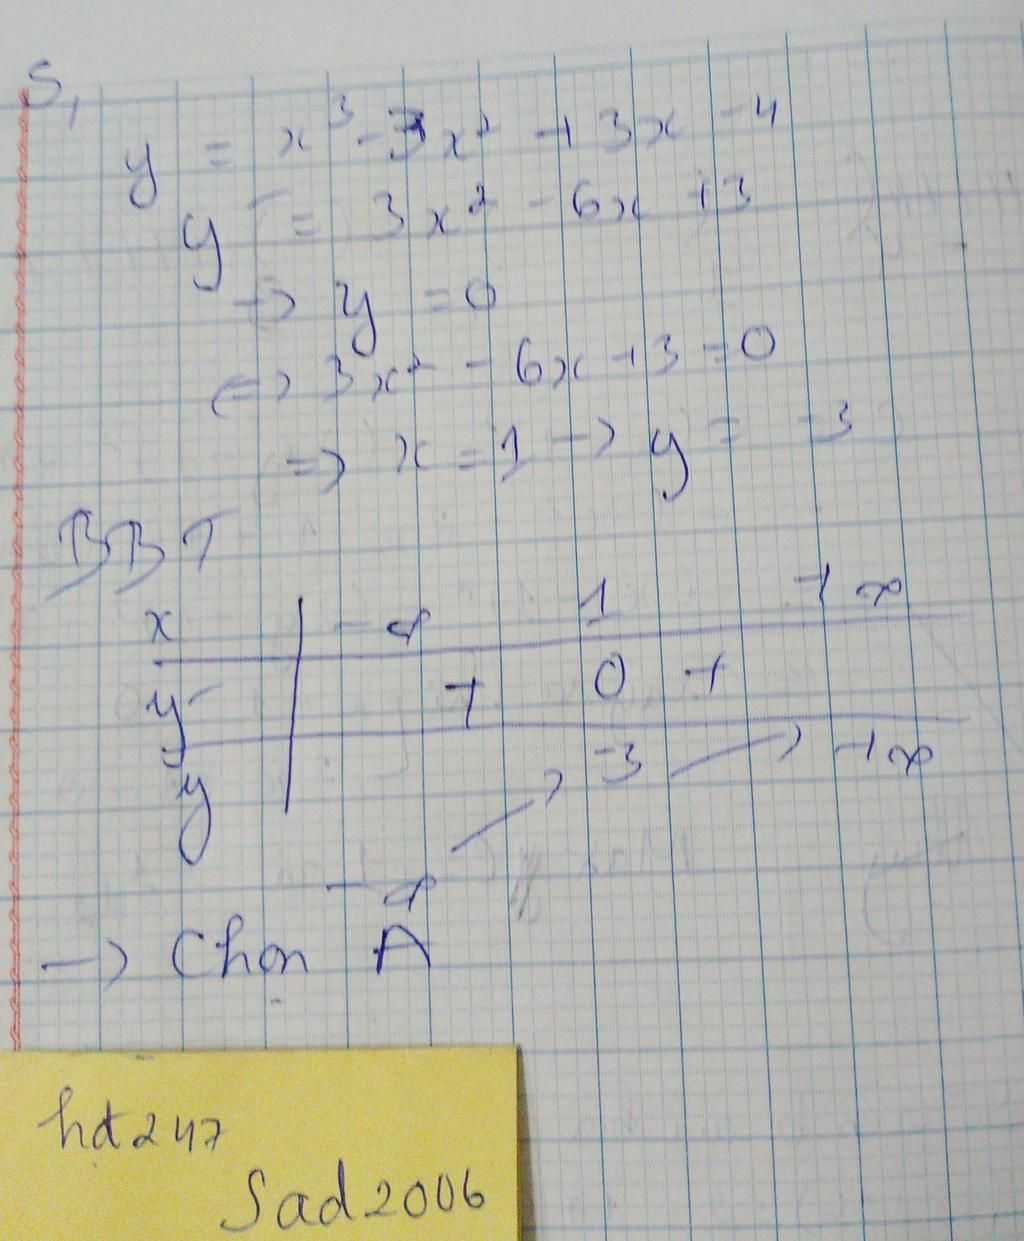 5,
y = x³ - 3x² + 3x - 4
y' = 3x² - 6x + 3
→ y = 0
<=> 3x² - 6x + 3 = 0
=> x = 1 → y = -3
BBT
x | -∞ 1 +∞
y' | + 0 +
y | -∞ -3 +∞
→ Chọn A
hd247
Sad2006